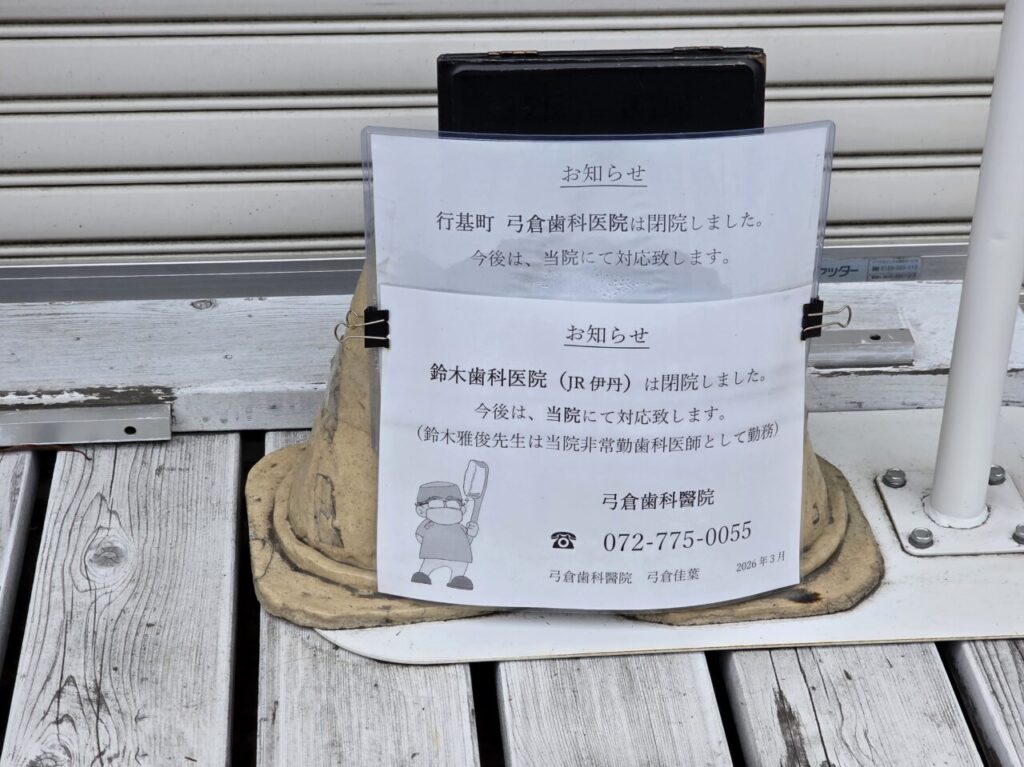 お知らせ
行基町 弓倉歯科医院は閉院しました。
今後は、当院にて対応致します。
ッター
お知らせ
鈴木歯科医院（JR 伊丹）は閉院しました。
今後は、当院にて対応致します。
（鈴木雅俊先生は当院非常勤歯科医師として勤務）
弓倉歯科醫院
☎ 072-775-0055
弓倉歯科醫院 弓倉佳葉
2026 年 3 月